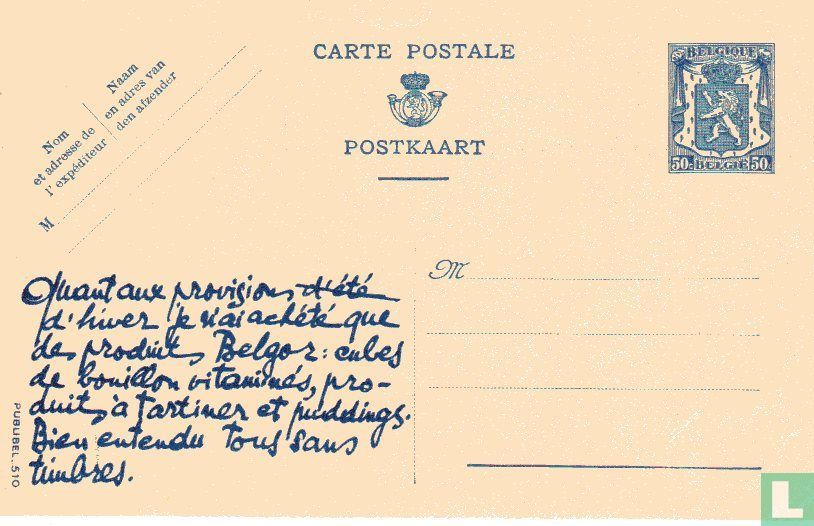 CARTE POSTALE
POSTKAART
BELGIQUE
50c BELGIË 50c
Nom
et adresse de
l'expéditeur
Naam
en adres van
den afzender
M
M
Quant aux provisions d'été
d'hiver je n'ai acheté que
des produits Belgor: cubes
de bouillon vitaminés, pro-
duits à tartiner et puddings.
Bien entendu tous sans
timbres.
PUBLIBEL.510
L